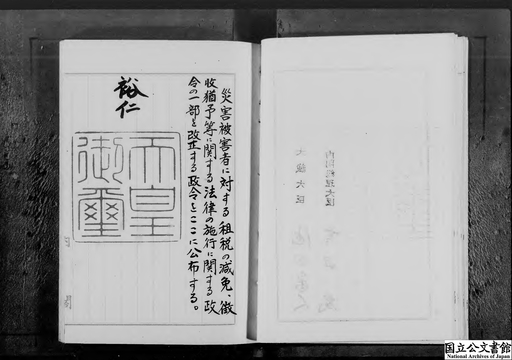 災害被害者に対する租税の減免、徴
收猶予等に関する法律の施行に関する政
令の一部を改正する政令をここに公布する。
裕仁
天皇
御璽
内閣総理大臣
大蔵大臣
国立公文書館
National Archives of Japan